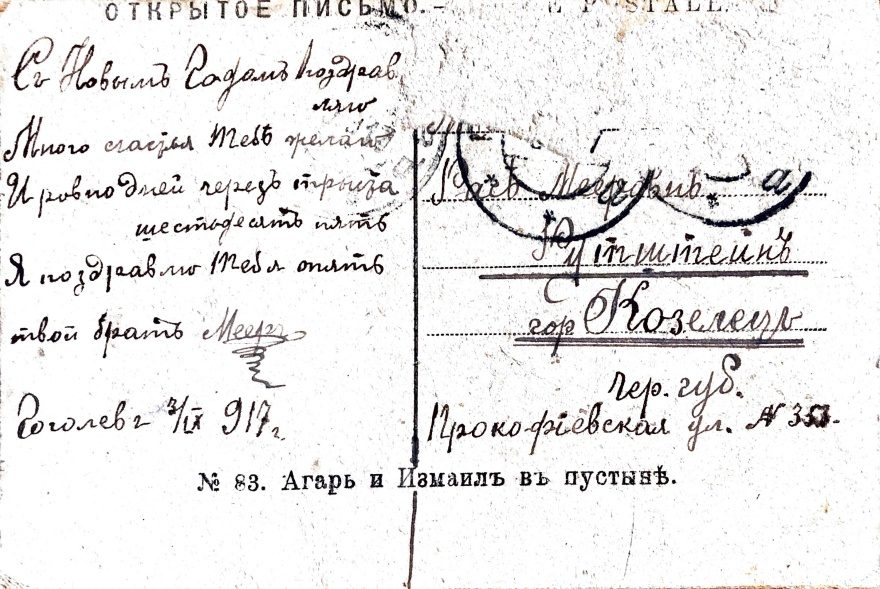 ОТКРЫТОЕ ПИСЬМО.–
Съ Новымъ Годомъ поздрав
ляю
Много счастья тебѣ желаю
И ровно дней черезъ триста
шестьдесятъ пять
Я поздравлю тебя опять
твой братъ Мееръ
Гоголевъ 3/IX 917г.
Рутштейнъ
гор Козелецъ
Чер. губ.
Прокофіевская ул. №
№ 83. Агарь и Измаилъ въ пустынѣ.